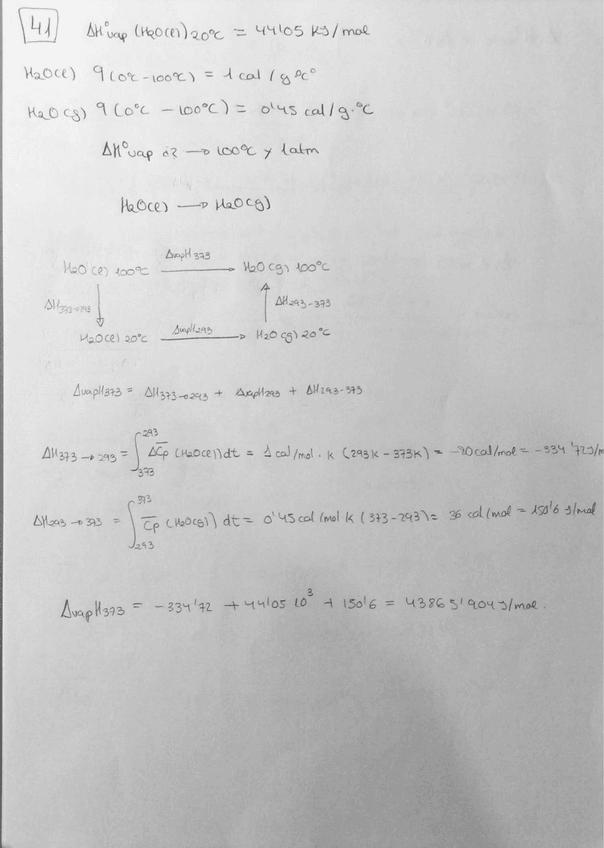 41 ΔH°vap (H2O(l)) 20°C = 44'05 KJ/mol
H2O(l) q (0°C - 100°C) = 1 cal / g °C
H2O(g) q (0°C - 100°C) = 0'45 cal/g·°C
ΔH°vap ¿? → 100°C y 1atm
H2O(l) → H2O(g)
ΔvapH373
H2O(l) 100°C → H2O(g) 100°C
ΔH373→293 ΔH293-373
H2O(l) 20°C ΔvapH293 → H2O(g) 20°C
ΔvapH373 = ΔH373→293 + ΔvapH293 + ΔH293-373
ΔH373→293 = ∫373 293 ΔCp (H2O(l)) dt = 1 cal/mol · K (293K - 373K) = -80 cal/mol = -334'72 J/m
ΔH293→373 = ∫293 373 Cp (H2O(g)) dt = 0'45 cal/mol K (373-293) = 36 cal/mol = 150'6 J/mol
ΔvapH373 = -334'72 + 44'05 10³ + 150'6 = 43865'904 J/mol.